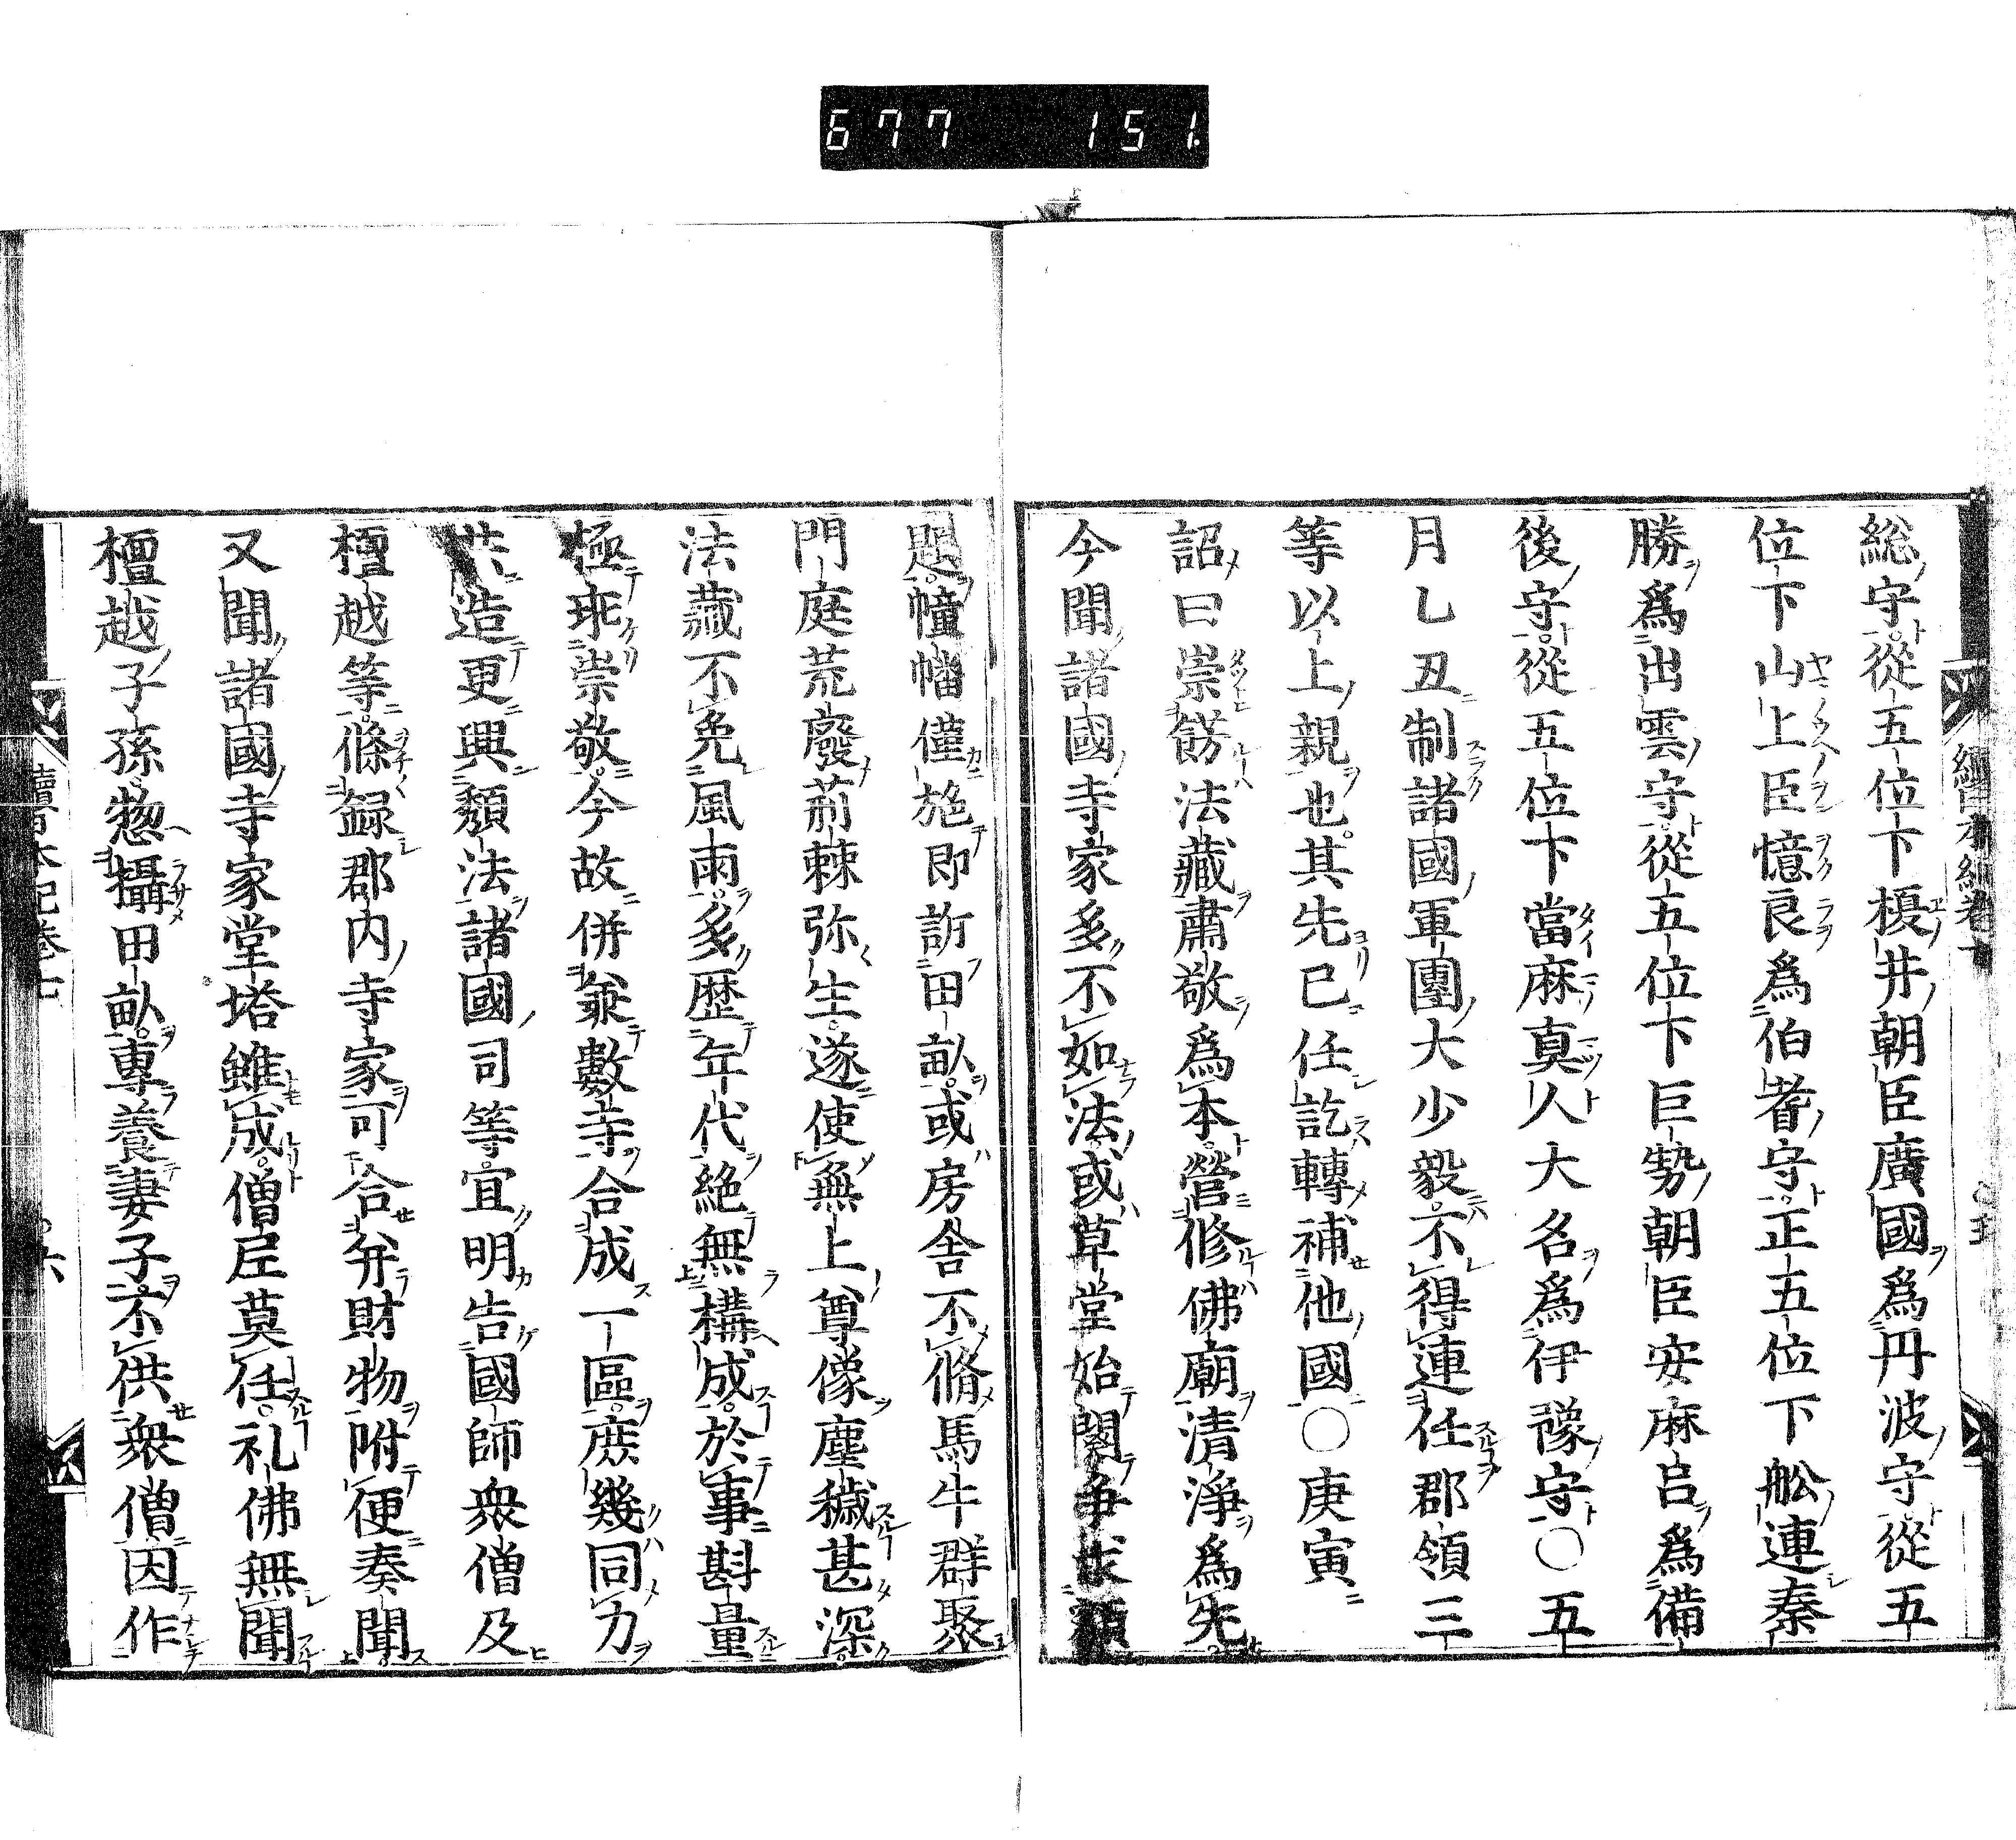 677 151.
総守從五位下榎井朝臣廣國爲丹波守從五
位下山上臣憶良爲伯耆守正五位下舩連秦
勝爲出雲守從五位下巨勢朝臣安麻呂爲備
後守從五位下當麻真人大名爲伊豫守〇五
月乙丑制諸國軍團大少毅不得連任郡領三
等以上親也其先已任訖轉補他國〇庚寅
詔曰崇餝法藏肅敬爲本營修佛廟清淨爲先
今聞諸國寺家多不如法或草堂始闢争求額
題幢幡僅施即訴田畝或房舎不脩馬牛群聚
門庭荒廢荊棘弥生遂使無上尊像塵穢甚深
法藏不免風雨多歴年代絶無構成於事斟量
極乖崇敬今故併兼數寺合成一區庶幾同力
共造更興頽法諸國司等宜明告國師衆僧及
檀越等條録郡内寺家可合并財物附便奏聞
又聞諸國寺家堂塔雖成僧尼莫住礼佛無聞
檀越子孫惣攝田畝專養妻子不供衆僧因作
續日本紀卷七
六